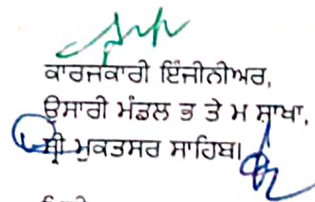 ਕਾਰਜਕਾਰੀ ਇੰਜੀਨੀਅਰ,
ਉਸਾਰੀ ਮੰਡਲ ਭ ਤੇ ਮ ਸ਼ਾਖਾ,
ਸ਼੍ਰੀ ਮੁਕਤਸਰ ਸਾਹਿਬ।